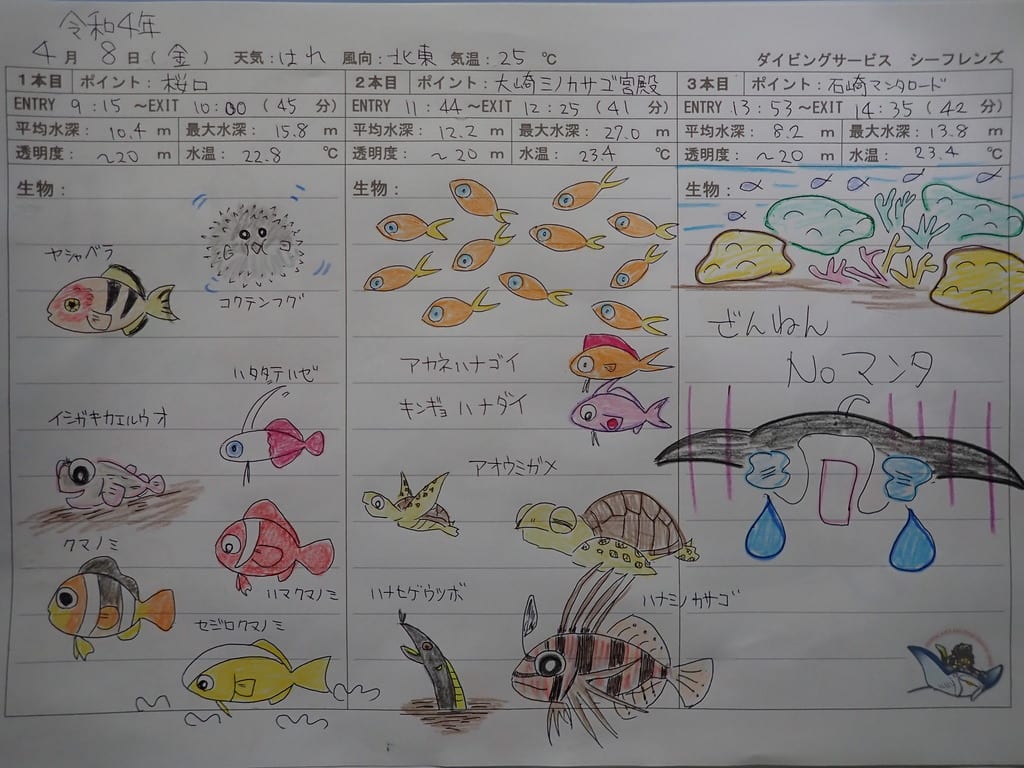 令和4年
4月 8日(金) 天気:はれ 風向:北東 気温:25 ℃ ダイビングサービス シーフレンズ
1本目 ポイント:桜口
ENTRY 9:15 ~EXIT 10:00 (45 分)
平均水深: 10.4 m 最大水深: 15.8 m
透明度: ~20 m 水温: 22.8 ℃
生物:
ヤシャバラ
コクテンフグ
ハタタテハゼ
イシガキカエルウオ
クマノミ
ハマクマノミ
セジロクマノミ
2本目 ポイント:大崎ミノカサゴ宮殿
ENTRY 11:44 ~EXIT 12:25 (41 分)
平均水深: 12.2 m 最大水深: 27.0 m
透明度: ~20 m 水温: 23.4 ℃
生物:
アカネハナゴイ
キンギョハナダイ
アオウミガメ
ハナヒゲウツボ
ハナミノカサゴ
3本目 ポイント:石崎マンタロード
ENTRY 13:53 ~EXIT 14:35 (42 分)
平均水深: 8.2 m 最大水深: 13.8 m
透明度: ~20 m 水温: 23.4 ℃
生物:
ざんねん
No マンタ